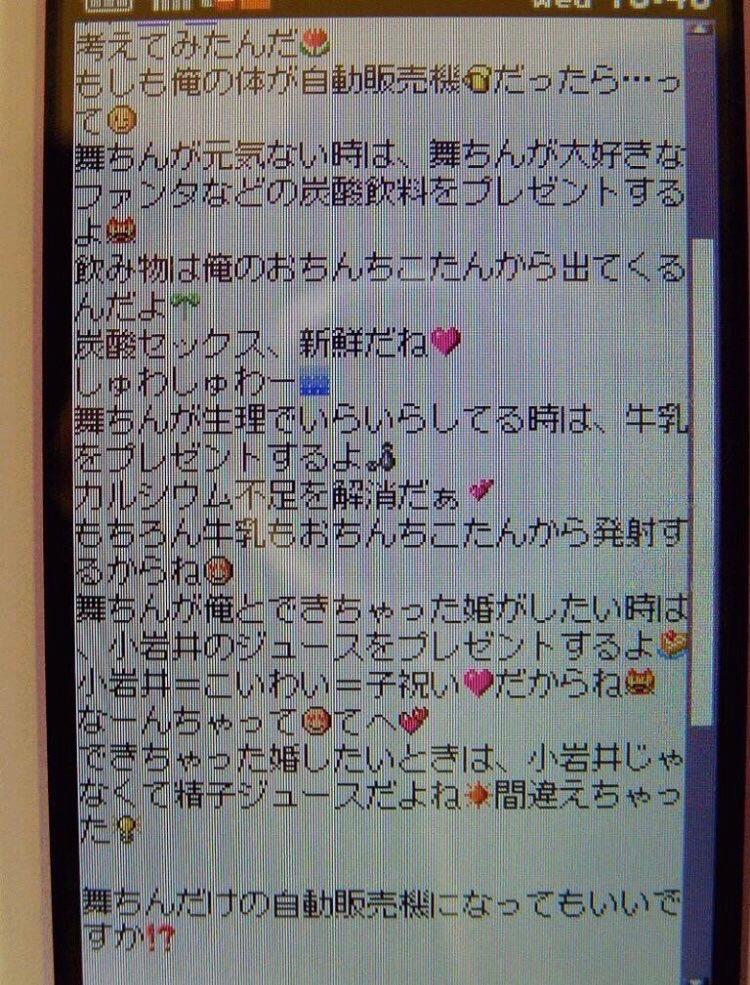 Wed 16:46
考えてみたんだ🌷
もしも俺の体が自動販売機🍺だったら…っ
て😊
舞ちんが元気ない時は、舞ちんが大好きな
ファンタなどの炭酸飲料をプレゼントする
よ😸
飲み物は俺のおちんちこたんから出てくる
んだよ🌱
炭酸セックス、新鮮だね💓
しゅわしゅわー🌊
舞ちんが生理でいらいらしてる時は、牛乳
をプレゼントするよ🍶
カルシウム不足を解消だぁ💕
もちろん牛乳もおちんちこたんから発射す
るからね😊
舞ちんが俺とできちゃった婚がしたい時は
、小岩井のジュースをプレゼントするよ🍰
小岩井＝こいわい＝子祝い💓だからね😸
なーんちゃって😊てへ💕
できちゃった婚したいときは、小岩井じゃ
なくて精子ジュースだよね☀間違えちゃっ
た💡
舞ちんだけの自動販売機になってもいいで
すか⁉